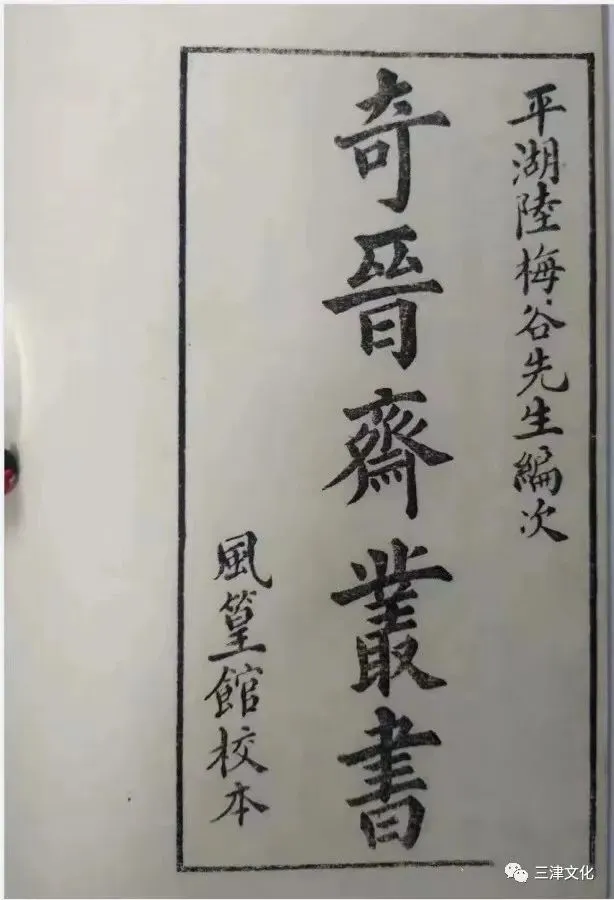 平湖陸梅谷先生編次
奇晉齋叢書
風篁館校本
三津文化